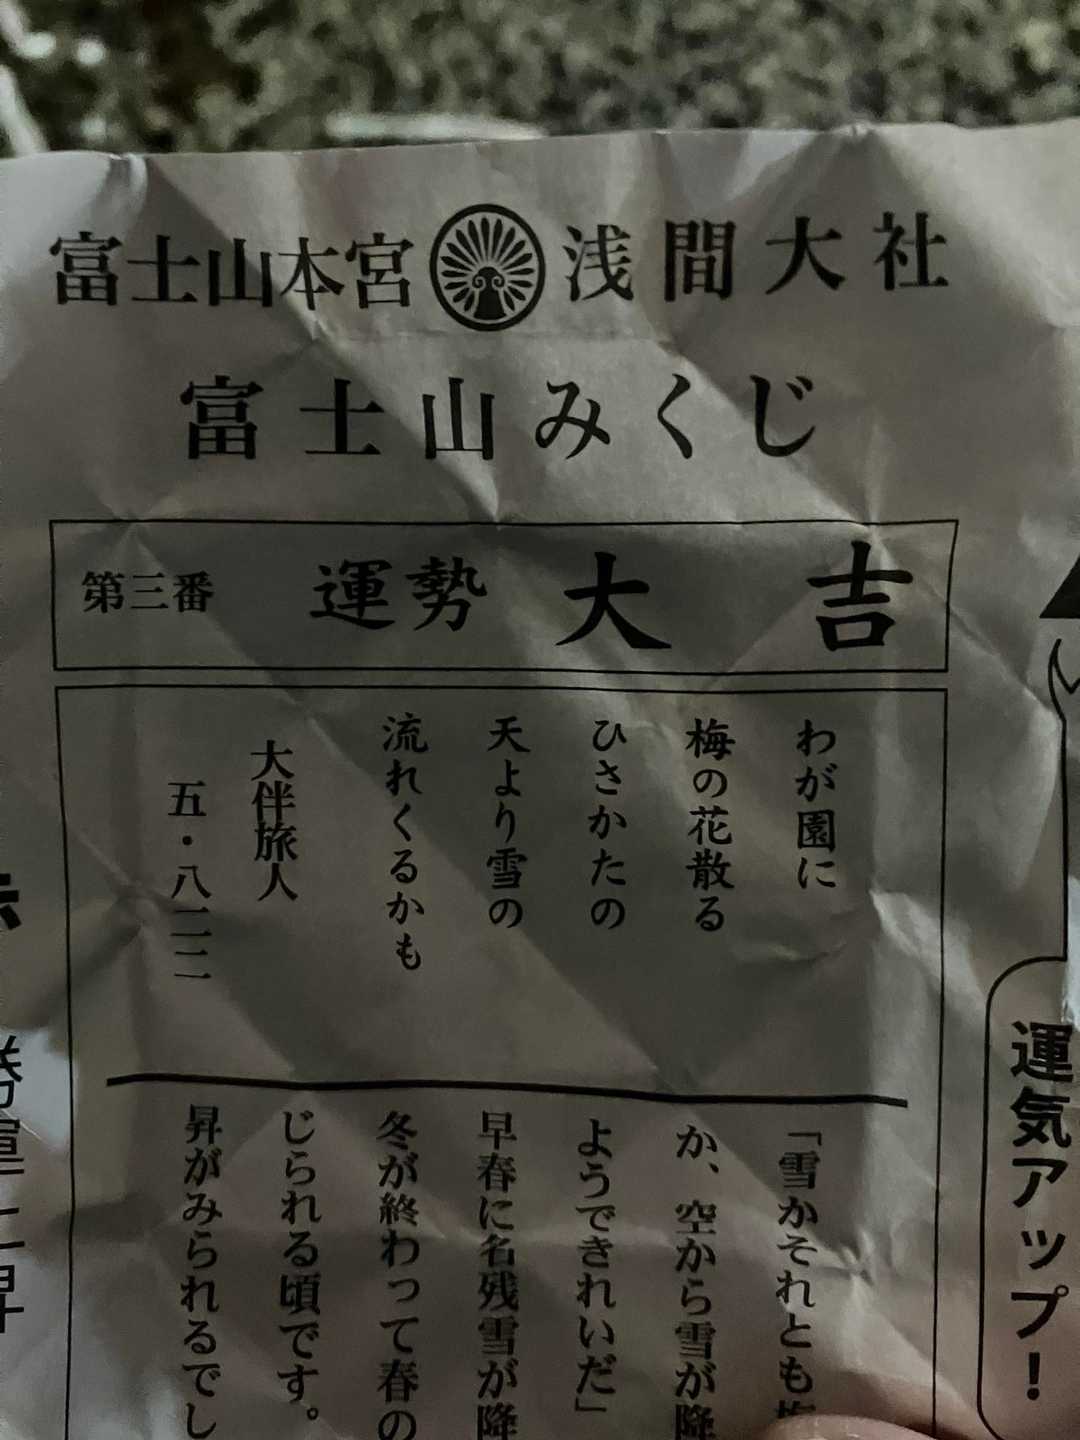 富士山本宮 浅間大社
富士山みくじ
第三番 運勢 大吉
わが園に
梅の花散る
ひさかたの
天より雪の
流れくるかも
大伴旅人
五・八二二
「雪かそれとも梅
か、空から雪が降
ようできれいだ」
早春に名残雪が降
冬が終わって春の
じられる頃です。
昇がみられるでし
運気アップ！